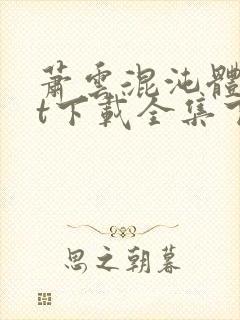 蕭雲混沌體
t下載全集
思之朝暮